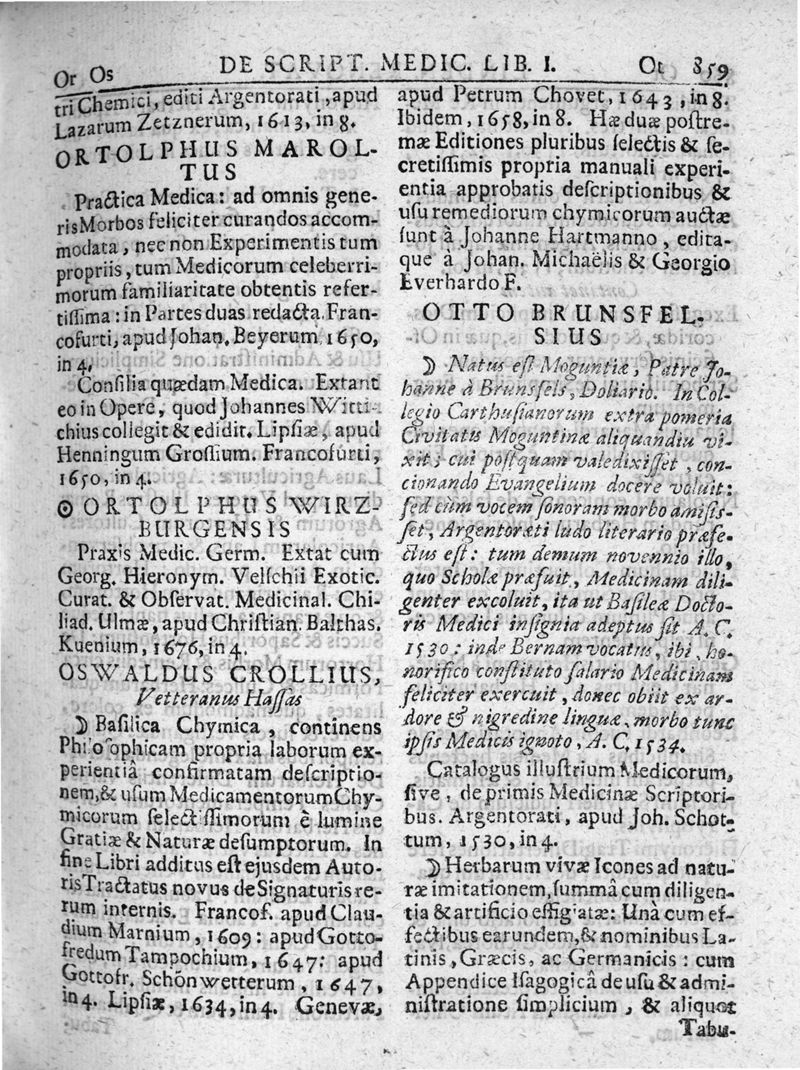 Or Os DE SCRIPT. MEDIC. LIB. I. Ot 859
tri Chemici, editi Argentorati, apud
Lazarum Zetznerum, 1613, in 8.
ORTOLPHUS MAROL-
TUS
Practica Medica: ad omnis gene-
ris Morbos feliciter curandos accom-
modata, nec non Experimentis tum
propriis, tum Medicorum celeberri-
morum familiaritate obtentis refer-
tiſſima: in Partes duas redacta. Fran-
cofurti, apud Johan. Beyerum 1650,
in 4.
Conſilia quædam Medica. Extant
eo in Opere, quod Johannes Witti-
chius collegit & edidit. Lipſiæ, apud
Henningum Groſſium. Francofurti,
1650, in 4.
☉ ORTOLPHUS WIRZ-
BURGENSIS
Praxis Medic. Germ. Extat cum
Georg. Hieronym. Velſchii Exotic.
Curat. & Obſervat. Medicinal. Chi-
liad. Ulmæ, apud Chriſtian. Balthas.
Kuenium, 1676, in 4.
OSWALDUS CROLLIUS,
Vetteranus Haſſas
☽ Baſilica Chymica, continens
Philoſophicam propria laborum ex-
perientiâ confirmatam deſcriptio-
nem, & uſum Medicamentorum Chy-
micorum ſelectiſſimorum è lumine
Gratiæ & Naturæ deſumptorum. In
fine Libri additus eſt ejusdem Auto-
ris Tractatus novus de Signaturis re-
rum internis. Francof. apud Clau-
dium Marnium, 1609: apud Gotto-
fredum Tampochium, 1647: apud
Gottofr. Schönwetterum, 1647,
in 4. Lipſiæ, 1634, in 4. Genevæ,
apud Petrum Chovet, 1643, in 8.
Ibidem, 1658, in 8. Hæ duæ poſtre-
mæ Editiones pluribus ſelectis & ſe-
cretiſſimis propria manuali experi-
entia approbatis deſcriptionibus &
uſu remediorum chymicorum auctæ
ſunt à Johanne Hartmanno, edita-
que à Johan. Michaëlis & Georgio
Everhardo F.
OTTO BRUNSFEL-
SIUS
☽ Natus eſt Moguntiæ, Patre Jo-
hanne à Brunsfels, Doliario. In Col-
legio Carthuſianorum extra pomeria
Civitatis Moguntinæ aliquandiu vi-
xit; cui poſtquam valedixiſſet, con-
cionando Evangelium docere voluit:
ſed cùm vocem ſonoram morbo amiſis-
ſet, Argentorati ludo literario præfe-
ctus eſt: tum demum novennio illo,
quo Scholæ præfuit, Medicinam dili-
genter excoluit, ita ut Baſileæ Docto-
ris Medici inſignia adeptus ſit A. C.
1530: inde Bernam vocatus, ibi, ho-
norifico conſtituto ſalario Medicinam
feliciter exercuit, donec obiit ex ar-
dore & nigredine linguæ, morbo tunc
ipſis Medicis ignoto, A. C. 1534.
Catalogus illuſtrium Medicorum,
ſive, de primis Medicinæ Scriptori-
bus. Argentorati, apud Joh. Schot-
tum, 1530, in 4.
☽ Herbarum vivæ Icones ad natu-
ræ imitationem, ſummâ cum diligen-
tia & artificio effigiatæ: Unà cum ef-
fectibus earundem, & nominibus La-
tinis, Græcis, ac Germanicis: cum
Appendice Iſagogicâ de uſu & admi-
niſtratione ſimplicium, & aliquot
Tabu-